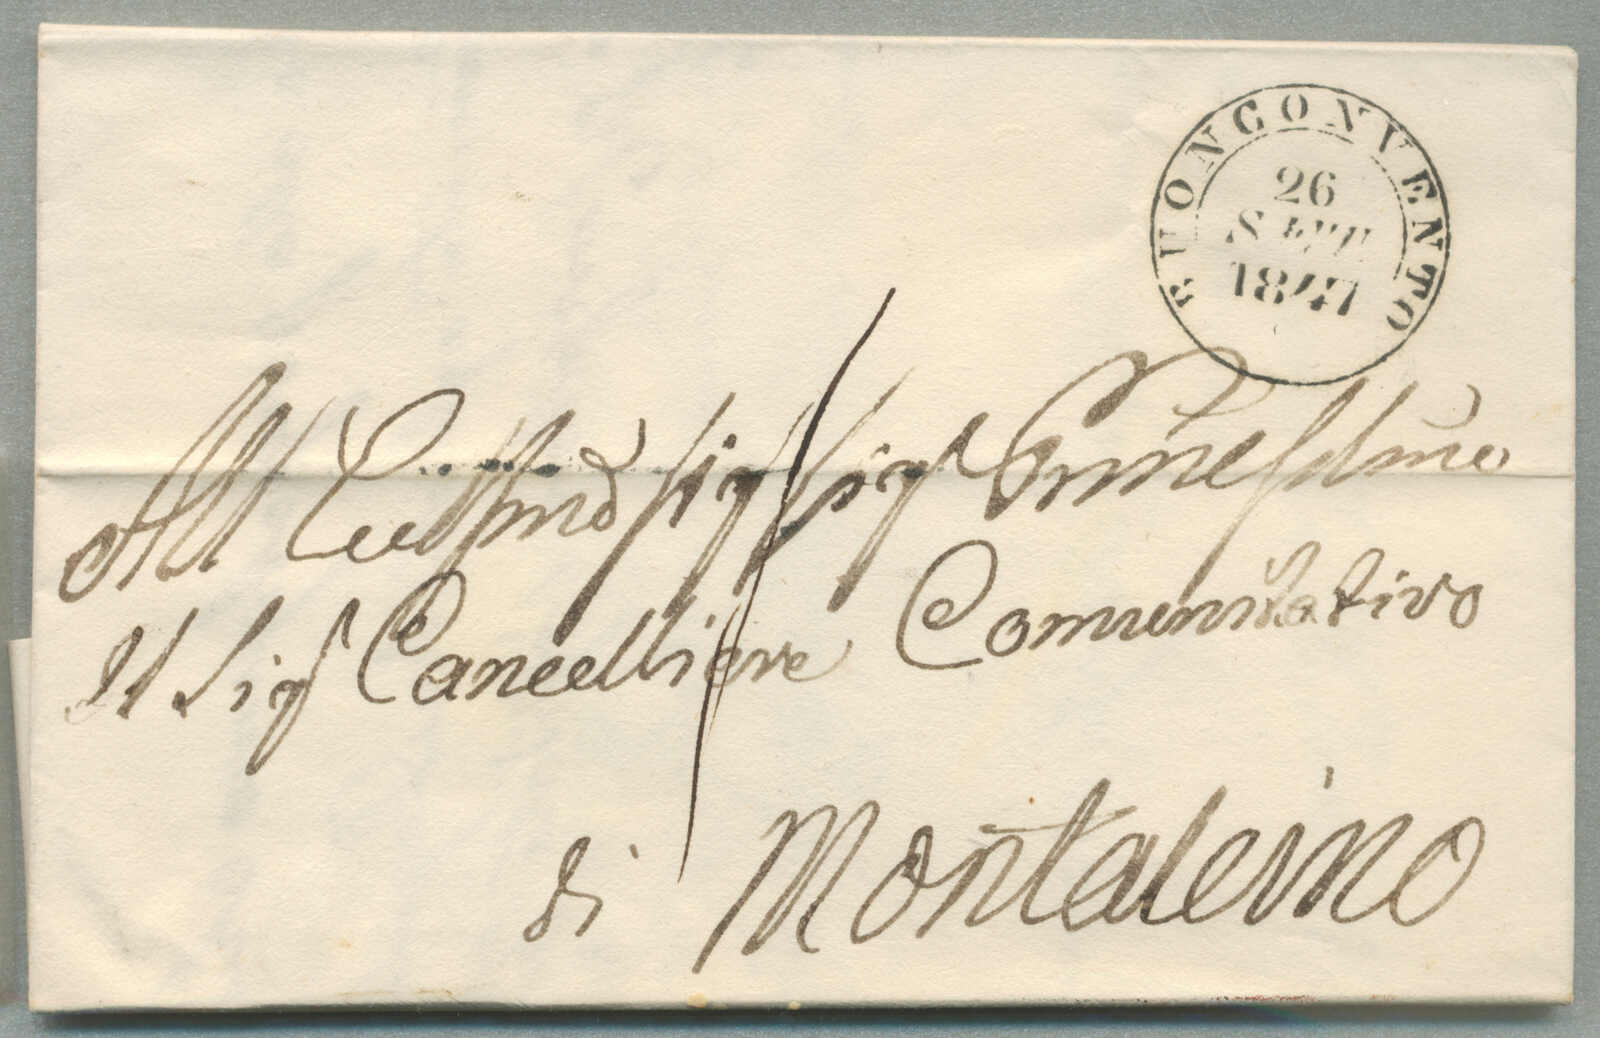 BUONCONVENTO
26
SETT.
1847
All Sig Sig
Il Sig Cancelliere Comunitativo
di Montalcino